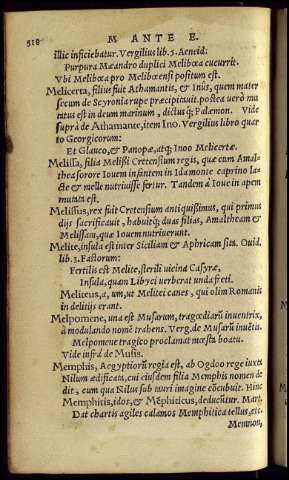 518
M ANTE E.
illic inficiebatur. Vergilius lib. 5. Aeneid:
Purpura Mæandro duplici Melibœa cucurrit.
Vbi Melibœa pro Melibœensi positum est.
Melicerta, filius fuit Athamantis, & Inûs, quem mater
secum de Scyronia rupe præcipitauit. postea uerò mu
tatus est in deum marinum, dictusq́; Palæmon. Vide
supra de Athamante, item Ino. Vergilius libro quar
to Georgicorum:
Et Glauco, & Panopæ, atq; Inoo Melicertæ.
Melissa, filia Melissi Cretensium regis, quæ cum Amal
thea sorore Iouem infantem in Idamonte caprino la-
cte & melle nutriuisse fertur. Tandem à Ioue in apem
mutata est.
Melissus, rex fuit Cretensium antiquissimus, qui primus
dijs sacrificauit, habuitq́; duas filias, Amaltheam &
Melissam, quæ Iouem nutriuerunt.
Melite, insula est inter Siciliam & Aphricam sita. Ouid.
lib. 3. Fastorum:
Fertilis est Melite, sterili uicina Cosyræ,
Insula, quam Libyci uerberat unda freti.
Meliteus, a, um, ut Melitei canes, qui olim Romanis
in delitijs erant.
Melpomene, una est Musarum, tragœdiarũ inuentrix,
à modulando nomẽ trahens. Verg. de Musarũ inuẽtis.
Melpomene tragico proclamat mœsta boatu.
Vide infrà de Musis.
Memphis, Aegyptiorũ regia est, ab Ogdoo rege iuxta
Nilum ædificata, cui eiusdem filia Memphis nomen de
dit, cum qua Nilus sub tauri imagine cõcubuit. Hinc
Memphitis, idos, & Mẽphiticus, deducũtur. Mart.
Dat chartis agiles calamos Memphitica tellus, etc.
Memnon,